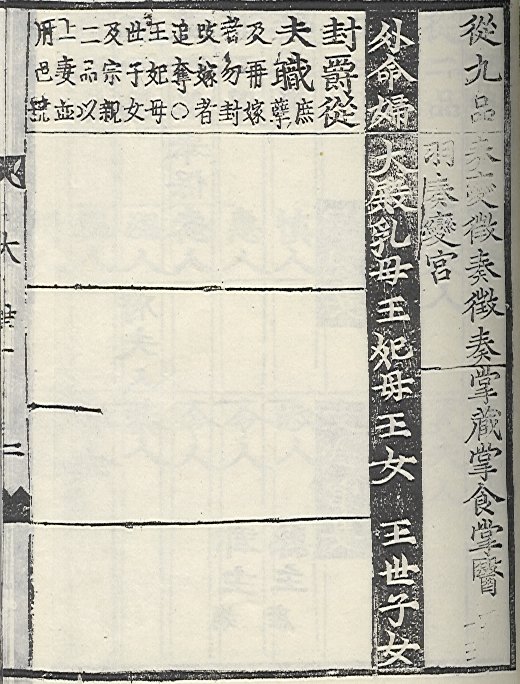 從九品奏變徵奏徵奏掌藏掌食掌醫
羽奏變宮
外命婦大殿乳母王妃母王女王世子女
封爵從
夫職庶孽
及再嫁
者勿封
改嫁者
追奪○
王妃母
世子女
及宗親
二品以
上妻並
用邑號
大典一 二